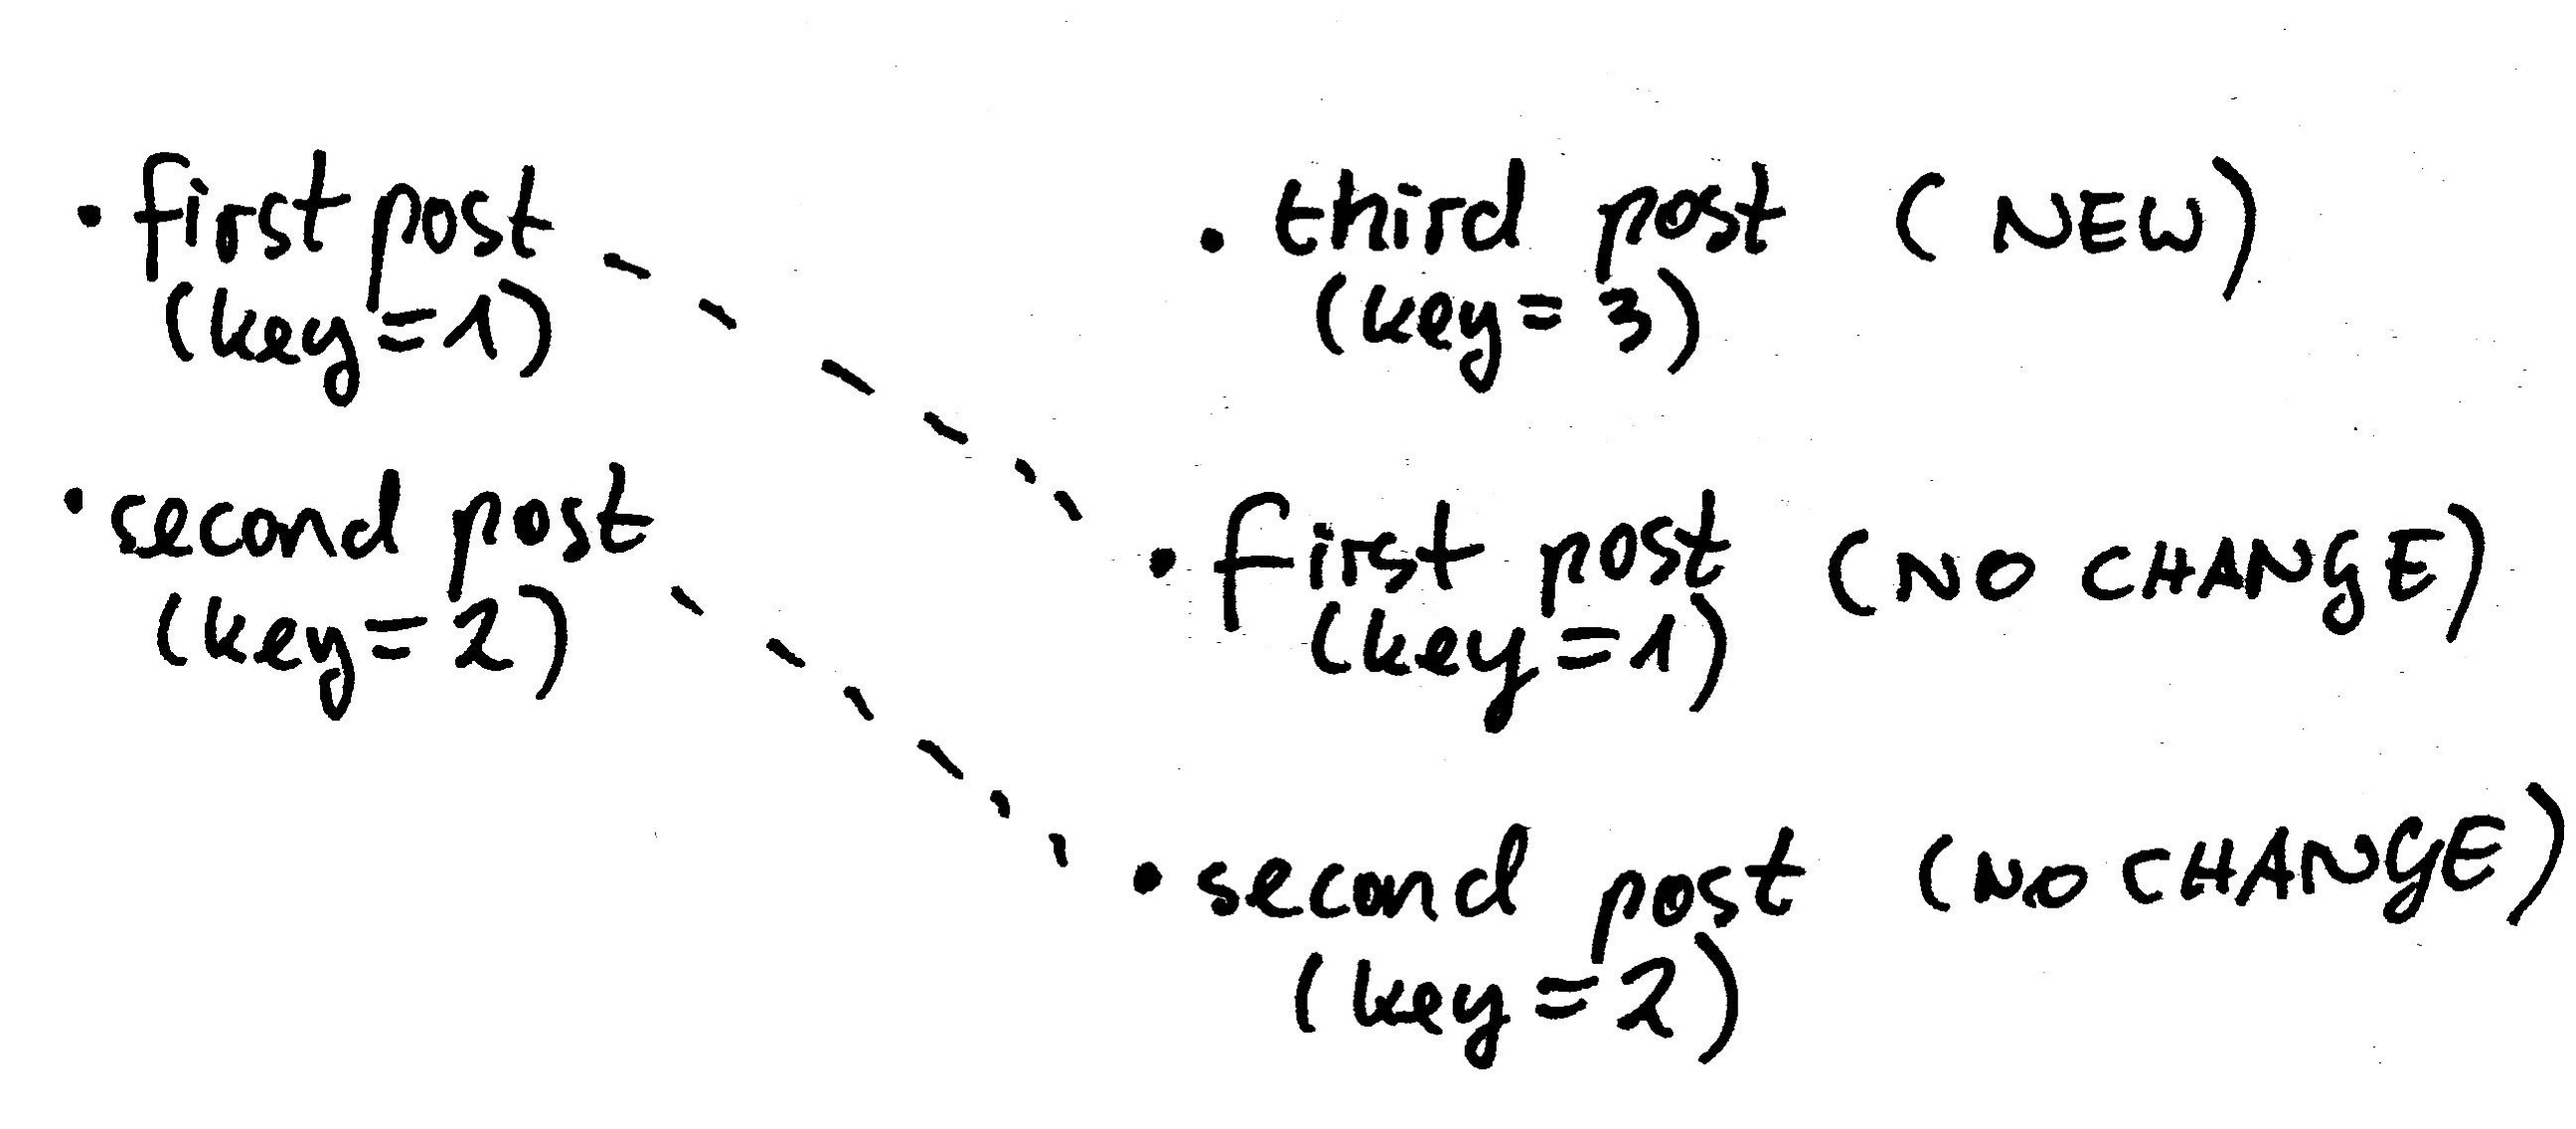 • first post
(key=1)
• second post
(key=2)
• third post (NEW)
(key=3)
• first post (NO CHANGE)
(key=1)
• second post (NO CHANGE)
(key=2)